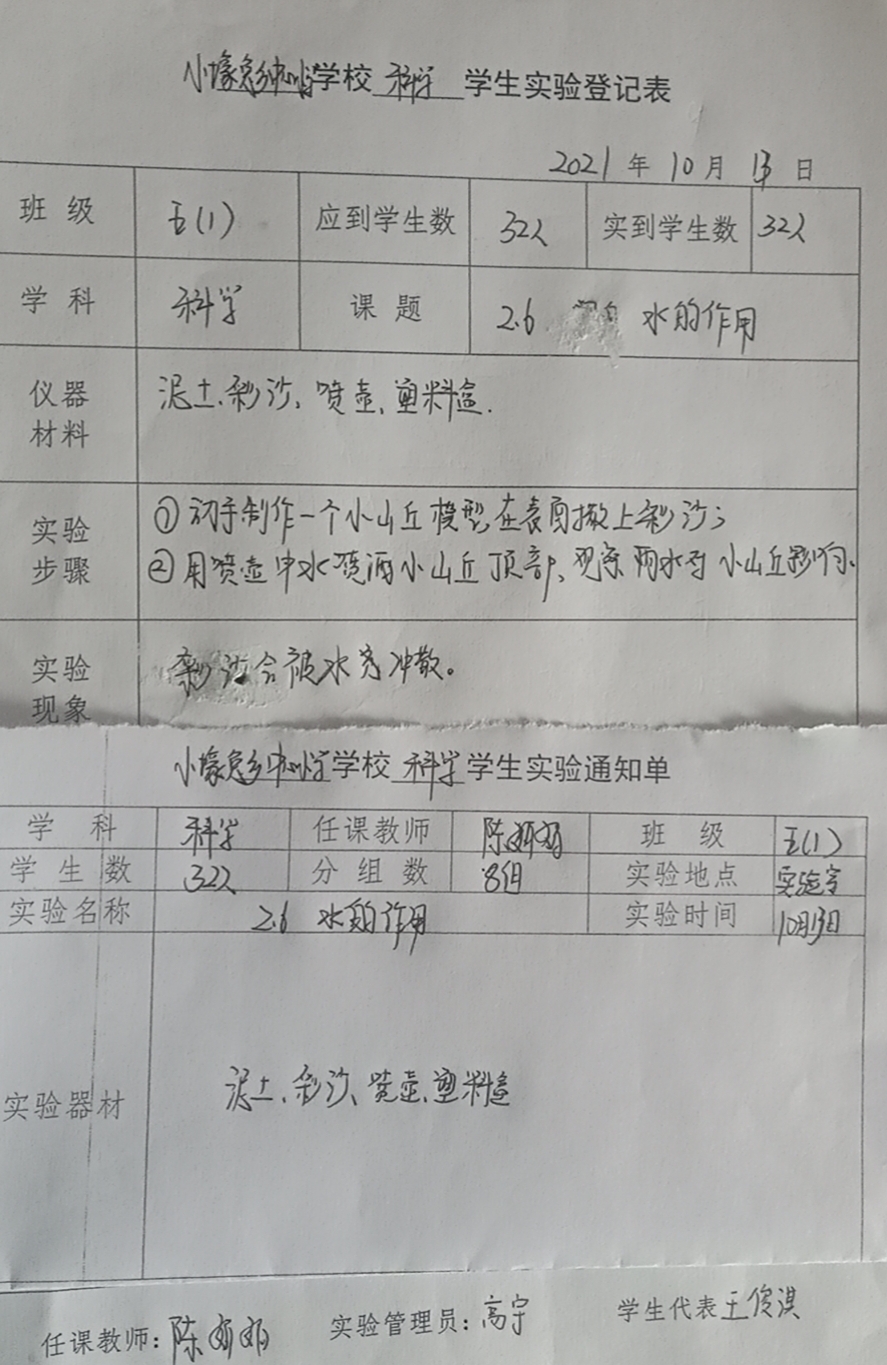 小壕兔乡中心小学学校 科学 学生实验登记表
2021 年 10 月 13 日
班 级 五(1) 应到学生数 32人 实到学生数 32人
学 科 科学 课 题 2.6 水的作用
仪器材料 泥土、彩沙、喷壶、塑料盒.
实验步骤 ①动手制作一个小山丘模型,在表面撒上彩沙;
②用喷壶中水喷洒小山丘顶部、观察雨水对小山丘影响.
实验现象 彩沙会被水流冲散。
小壕兔乡中心小学学校 科学 学生实验通知单
学 科 科学 任课教师 陈 班 级 五(1)
学 生 数 32人 分 组 数 8组 实验地点 实验室
实验名称 2.6 水的作用 实验时间 10月13日
实验器材 泥土、彩沙、喷壶、塑料盒
任课教师: 陈 实验管理员: 高宇 学生代表 王俊淇